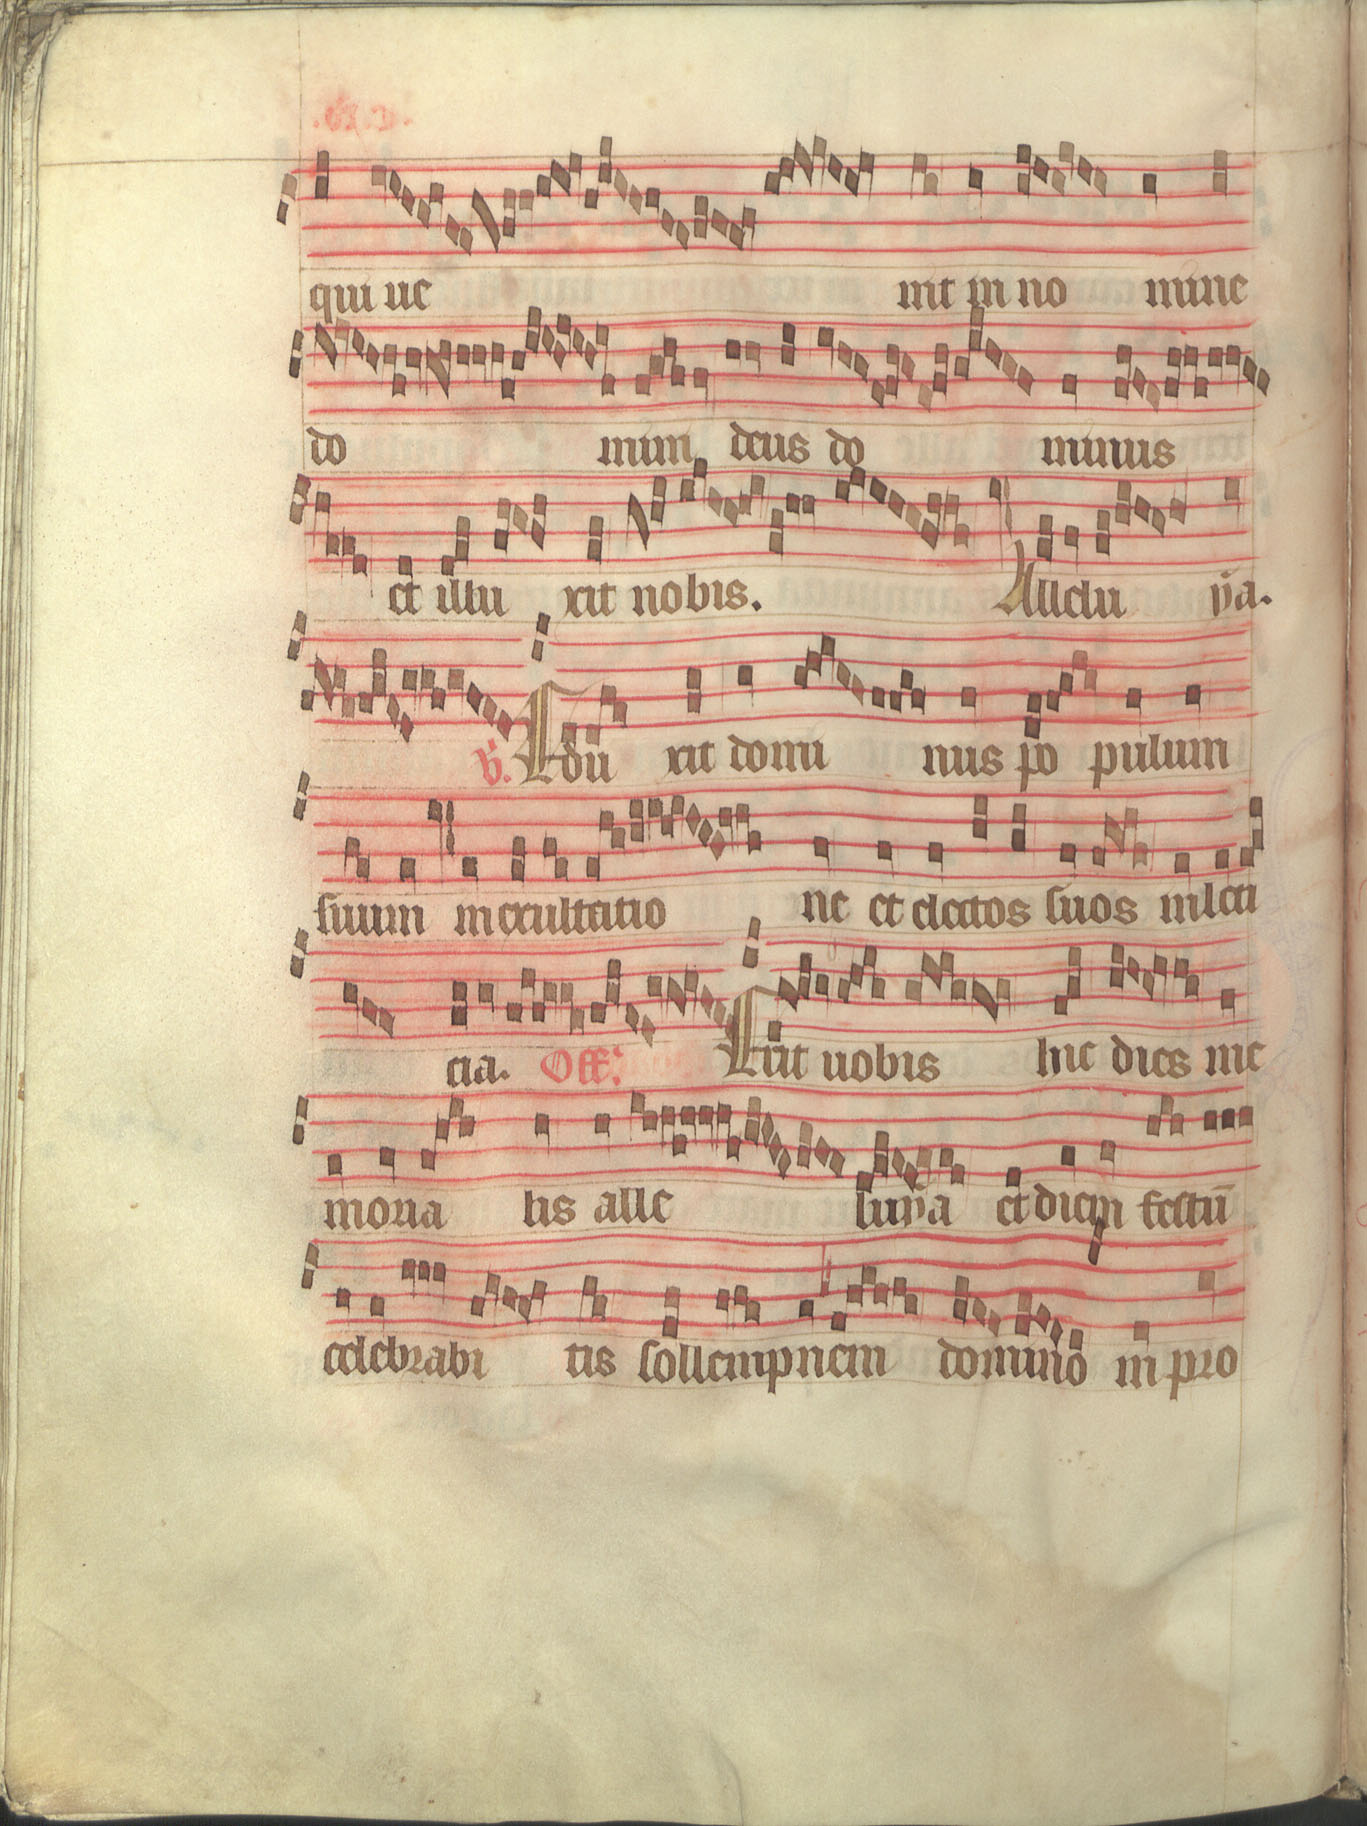 qui ue nit in no mine
do mini deus do minus
et illu xit nobis. Allelu ya.
V. Edu xit domi nus po pulum
suum in exultatio ne et electos suos in leti
cia. Off. Erit uobis hic dies me
moria lis alle luya et diem festū
celebrabi tis sollempnem domino in pro